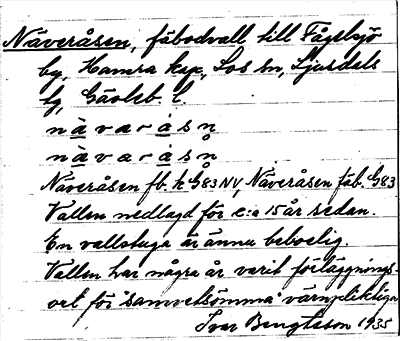 Näveråsen, fäbodvall till Fågelsjö
by, Hamra kap., Los sn, Ljusdals
tg, Gävleb. l.
nàvarȧsn̥
nàvarȧsn̥
Näveråsen fb. k G83NV, Näveråsen fäb. G83
Vallen nedlagd för c:a 15 år sedan.
En vallstuga är ännu beboelig.
Vallen har några år varit förläggnings-
ort för "samvetsömma" värnpliktiga
Ivar Bengtsson 1935